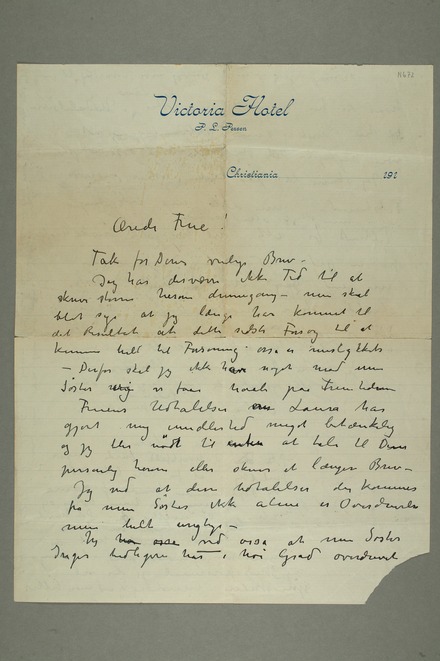 N 672
Victoria Hotel
P. L. Person
Christiania 191
Ærede Frue!
Tak for Deres venlige Brev –
Jeg har desværre ikke Tid til at
skrive større herom dennegang – men skal
blot sige at jeg længe har kommet til
det Resultat at dette sidste Forsøg til at
komme helt til Forsoning ogsaa er mislykkets
– Derfor skal jeg ikke have noget med min
Søster vi faar haabe paa Fremtiden
Fruens Udtalelser om Laura har
gjort mig imidlertid meget betænkelig
og jeg blir nødt til enten at tale til Dem
personlig herom eller skrive et længere Brev –
Jeg ved at disse Udtalelser der kommer
fra min Søster ikke alene er Overdrivelse
men helt urigtige –
Jeg ved ogsaa at min Søster
Inger tidligere har i høi Grad overdrevet